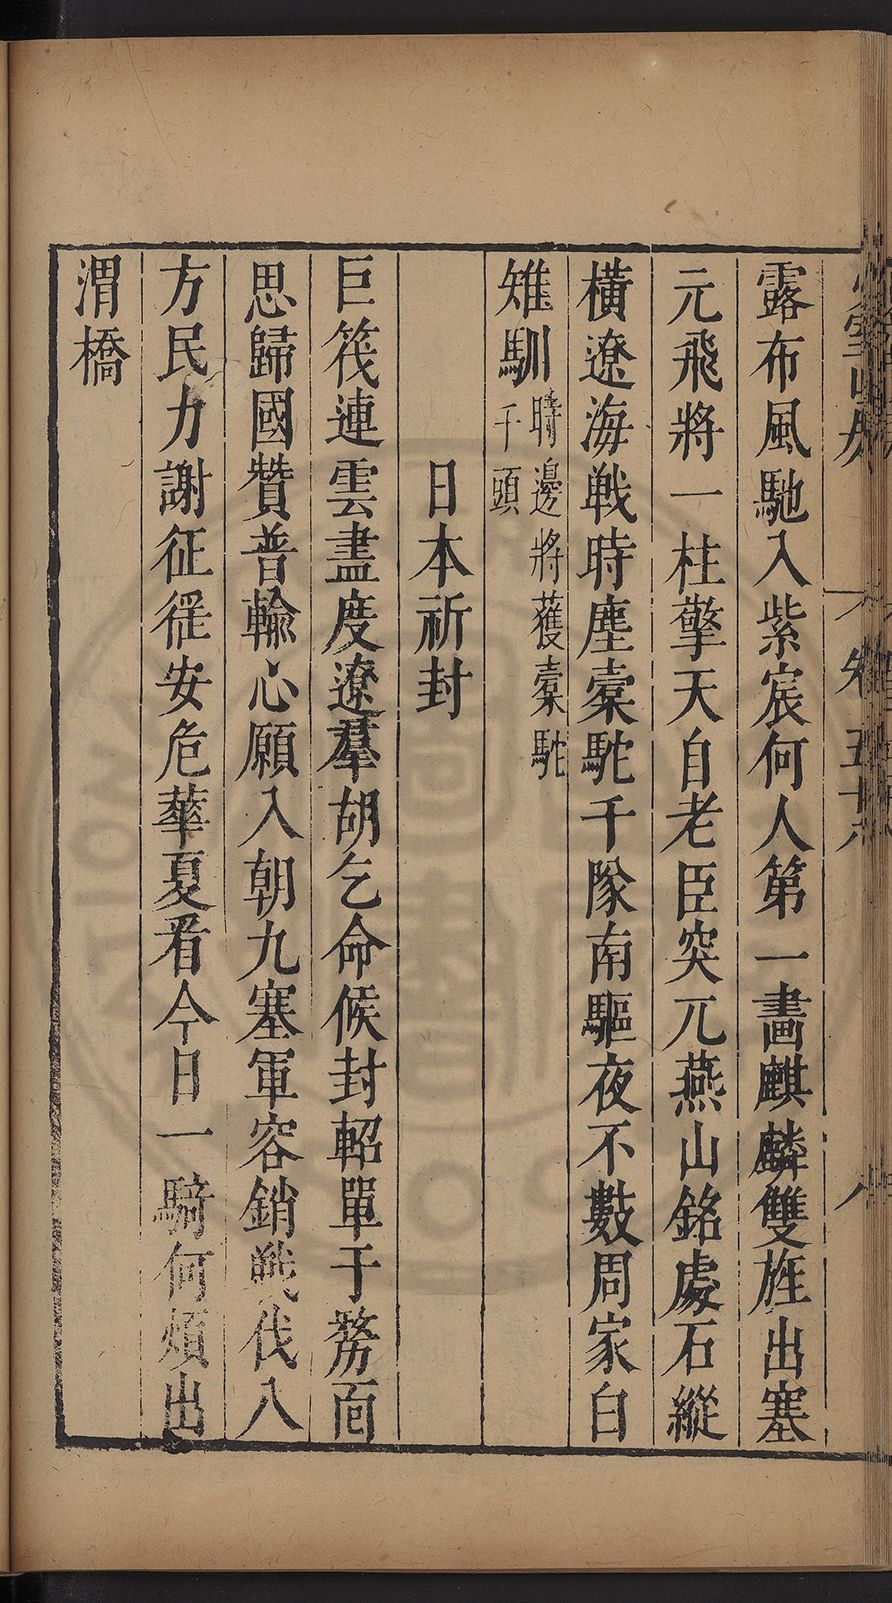 卷五十六
八
露布風馳入紫宸何人第一畫麒麟雙旌出塞
元飛將一柱擎天自老臣突兀燕山銘處石縱
橫遼海戦時塵橐駝千隊南驅夜不數周家白
雉馴
時邊將獲橐駝
千頭
日本祈封
巨筏連雲盡度遼羣胡乞命候封軺單于剺面
思歸國贊普輸心願入朝九塞軍容銷戰伐八
方民力謝征徭安危華夏看今日一騎何煩出
渭橋